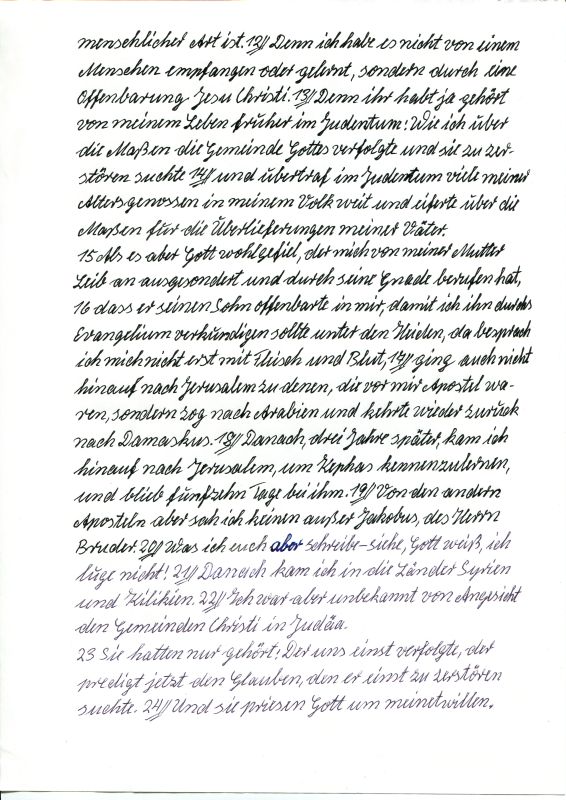 menschlicher Art ist. 12// Denn ich habe es nicht von einem
Menschen empfangen oder gelernt, sondern durch eine
Offenbarung Jesu Christi. 13// Denn ihr habt ja gehört
von meinem Leben früher im Judentum: Wie ich über
die Maßen die Gemeinde Gottes verfolgte und sie zu zer-
stören suchte 14// und übertraf im Judentum viele meiner
Altersgenossen in meinem Volk weit und eiferte über die
Maßen für die Überlieferungen meiner Väter.
15 Als es aber Gott wohlgefiel, der mich von meiner Mutter
Leib an ausgesondert und durch seine Gnade berufen hat,
16 dass er seinen Sohn offenbarte in mir, damit ich ihn durchs
Evangelium verkündigen sollte unter den Heiden, da besprach
ich mich nicht erst mit Fleisch und Blut, 17// ging auch nicht
hinauf nach Jerusalem zu denen, die vor mir Apostel wa-
ren, sondern zog nach Arabien und kehrte wieder zurück
nach Damaskus. 18// Danach, drei Jahre später, kam ich
hinauf nach Jerusalem, um Kephas kennenzulernen,
und blieb fünfzehn Tage bei ihm. 19// Von den andern
Aposteln aber sah ich keinen außer Jakobus, des Herrn
Bruder. 20// Was ich euch aber schreibe - siehe, Gott weiß, ich
lüge nicht! 21// Danach kam ich in die Länder Syrien
und Zilikien. 22// Ich war aber unbekannt von Angesicht
den Gemeinden Christi in Judäa.
23 Sie hatten nur gehört: Der uns einst verfolgte, der
predigt jetzt den Glauben, den er einst zu zerstören
suchte. 24// Und sie priesen Gott um meinetwillen.